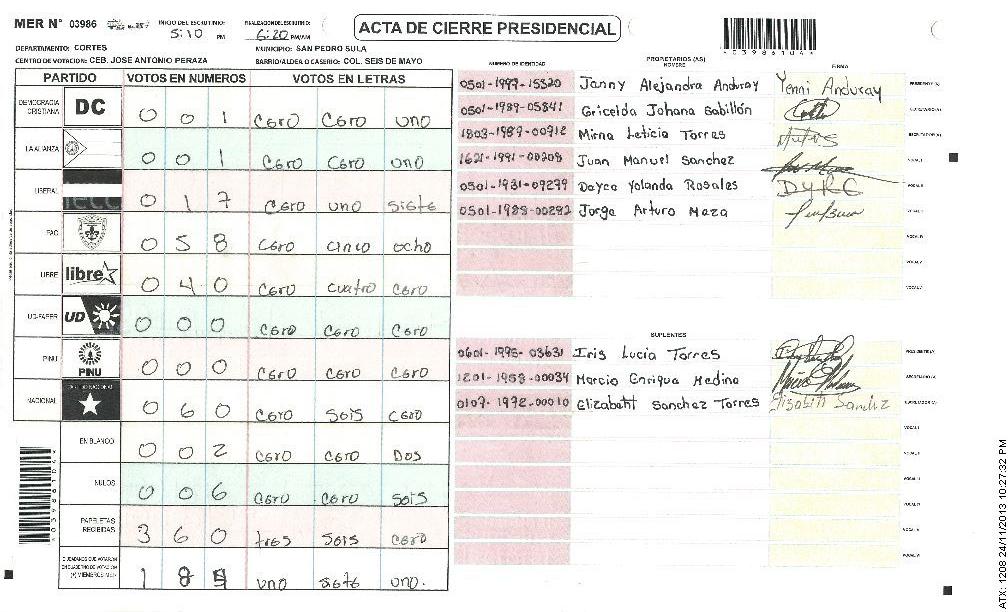 MER N° 03986 INICIO DEL ESCRUTINIO: 5:10 PM FINALIZACION DEL ESCRUTINIO: 6:20 PM/AM ACTA DE CIERRE PRESIDENCIAL
DEPARTAMENTO: CORTES MUNICIPIO: SAN PEDRO SULA
CENTRO DE VOTACION: CEB. JOSE ANTONIO PERAZA BARRIO/ALDEA O CASERIO: COL. SEIS DE MAYO
*03986104*
PARTIDO VOTOS EN NUMEROS VOTOS EN LETRAS
DEMOCRACIA CRISTIANA DC 0 0 1 Cero Cero uno
LA ALIANZA 0 0 1 Cero Cero uno
LIBERAL 0 1 7 Cero uno siete
PAC 0 5 8 Cero cinco ocho
LIBRE libre 0 4 0 Cero cuatro Cero
UD-FAPER UD 0 0 0 Cero Cero Cero
PINU PINU 0 0 0 Cero Cero Cero
NACIONAL 0 6 0 Cero Seis Cero
EN BLANCO 0 0 2 Cero Cero Dos
NULOS 0 0 6 Cero Cero Seis
PAPELETAS RECIBIDAS 3 6 0 tres Seis Cero
CIUDADANOS QUE VOTARON
EN CUADERNO DE VOTACION
(+) MIEMBROS MER 1 8 uno siete uno.
*03986104*
NUMERO DE IDENTIDAD PROPIETARIOS (AS) NOMBRE FIRMA
0501-1997-15320 Janny Alejandra Anduray Yenni Anduray PRESIDENTE (A)
0501-1989-05841 Gricelda Johana Gabillón SECRETARIO (A)
1803-1987-00912 Mirna Leticia Torres ESCRUTADOR (A)
1621-1991-00208 Juan Manuel Sanchez VOCAL I
0501-1931-09279 Dayce Yolanda Rosales VOCAL II
0501-1988-00292 Jorge Arturo Meza VOCAL III
VOCAL IV
VOCAL V
SUPLENTES
0601-1995-03631 Iris Lucia Torres PRESIDENTE (A)
1201-1958-00034 Marcio Enrique Medina SECRETARIO (A)
0107-1972-00010 Elizabeht Sanchez Torres Elisabeht Sanchez ESCRUTADOR (A)
VOCAL I
VOCAL II
VOCAL III
ATX: 1208 24/11/2013 10:27:32 PM